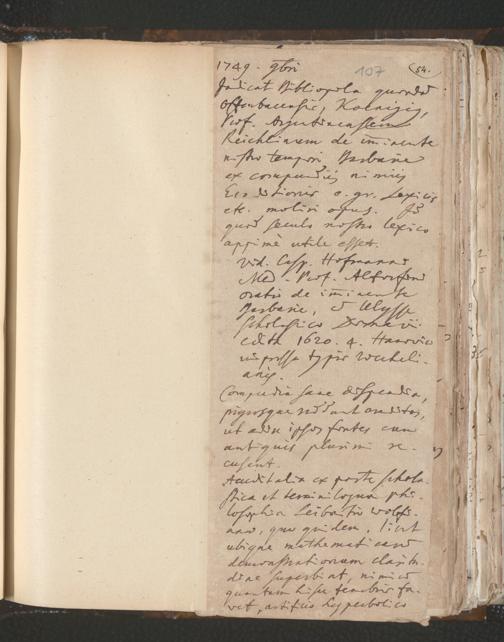 1749. 9bri 107 (54.
Judicat Bibliopola quondam
Offenbacensis, Koenigius,
Prof. Argentinensem
Reichlinum de imminente
nostro tempori Barbarie
ex compendiis nimiis
Eruditionis e. gr. Lexicis
etc. moliri opus.
quod seculo nostro lexico
apprime utile esset.
Vid. Casp. Hofmanni
Med. Prof. Altorfini
oratio de imminente
Barbarie, et Ulysse
scholastico
edita 1620. 4. Hanoviae
impressa typis Wecheli-
anis.
Compendia sane dispendia,
pigrosque reddunt eruditos,
ut adire ipsos fontes cum
antiquis plurimi re-
cusent.
ex parte schola-
stica et philo-
losophia Leibnitii Wolfi-
ana, quae quidem, licet
ubique mathematicam
demonstrationum claritu-
dine superbiat, nimis
quantum hisce tenebris fa-
vet, artificio hyperbolico